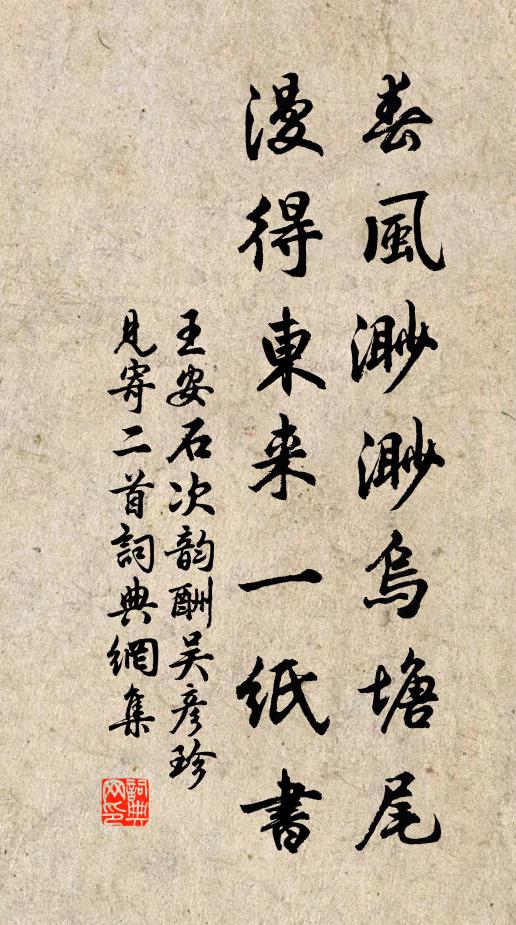 春風渺渺烏塘尾
漫得東来一紙書
王安石次韵酬吴彦珍
見寄二首詞典網集
詞典
网印